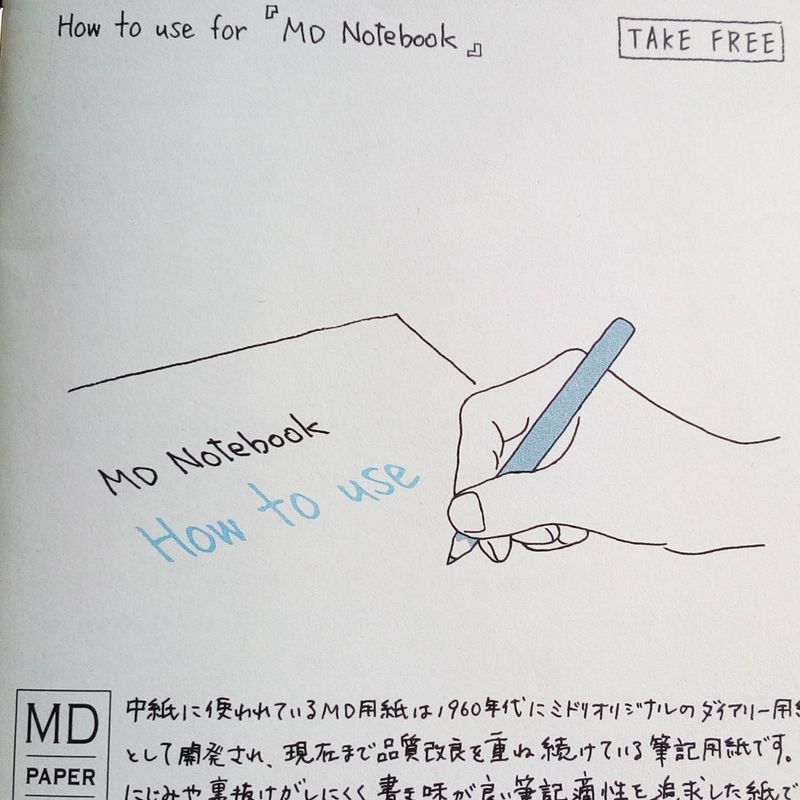 How to use for『MD Notebook』
TAKE FREE
MD Notebook
How to use
MD
PAPER
中紙に使われているMD用紙は1960年代にミドリオリジナルのダイアリー用紙
として開発され、現在まで品質改良を重ね続けている筆記用紙です。
にじみや裏抜けがしにくく書き味が良い筆記適性を追求した紙で